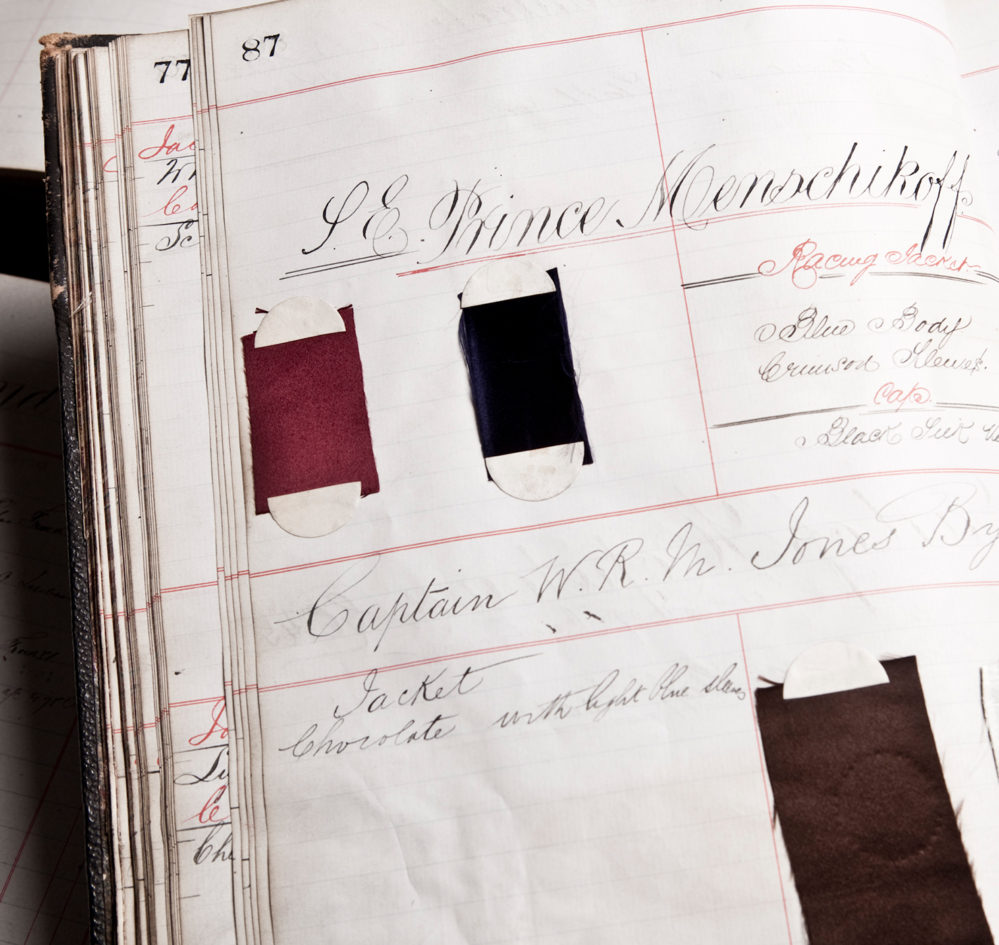 77
87
S. E. Prince Menschikoff
Racing Jacket
Blue Body
Crimson Sleeves.
Cap
Black Silk
Captain W. R. M. Jones By
Jacket
Chocolate with light blue sleeves